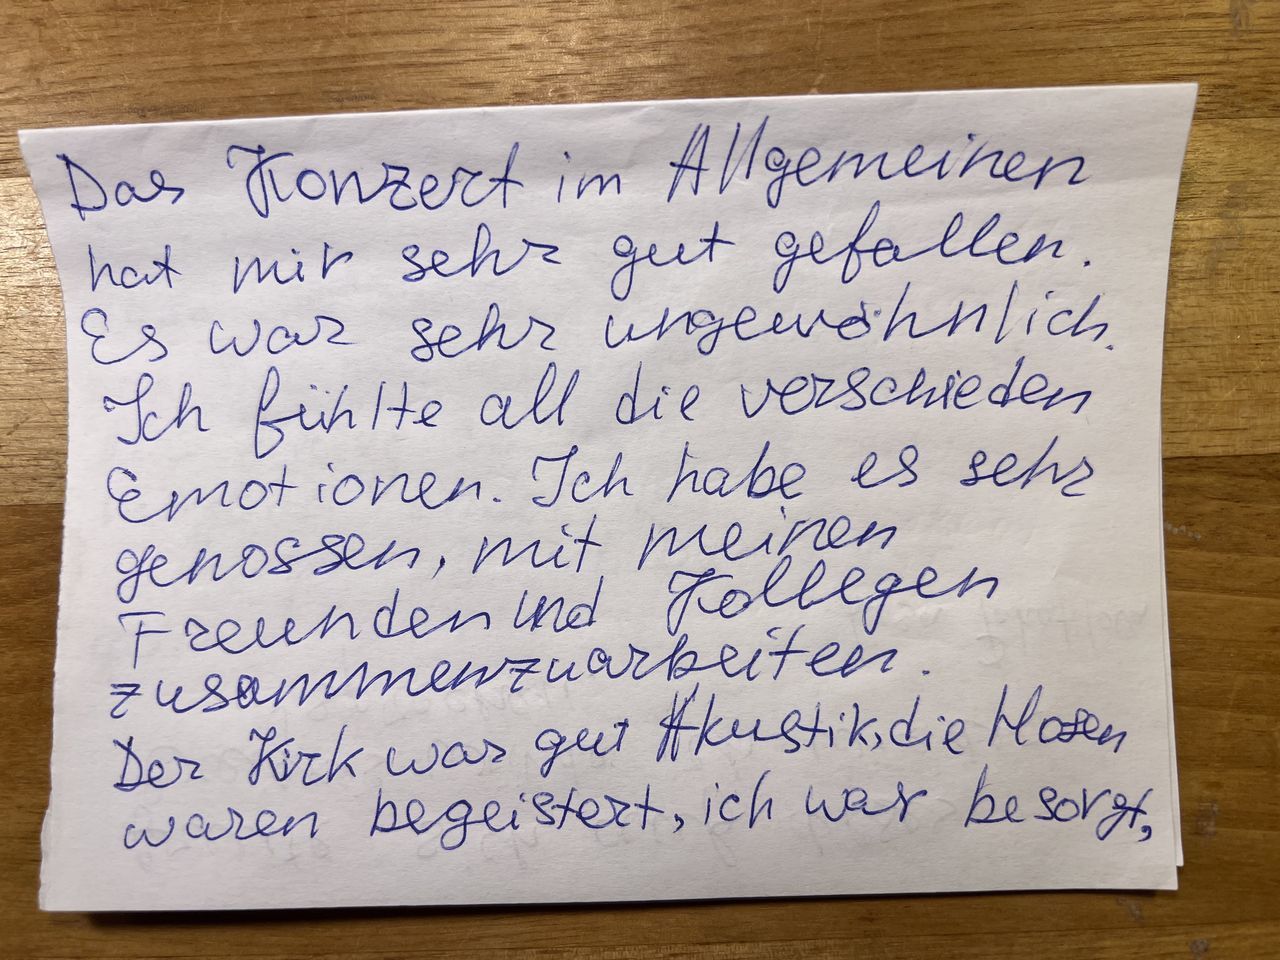 Das Konzert im Allgemeinen
hat mir sehr gut gefallen.
Es war sehr ungewöhnlich.
Ich fühlte all die verschieden
Emotionen. Ich habe es sehr
genossen, mit meinen
Freunden und Kollegen
zusammenzuarbeiten.
Der Kirk war gut Akustik, die
waren begeistert, ich war besorgt,